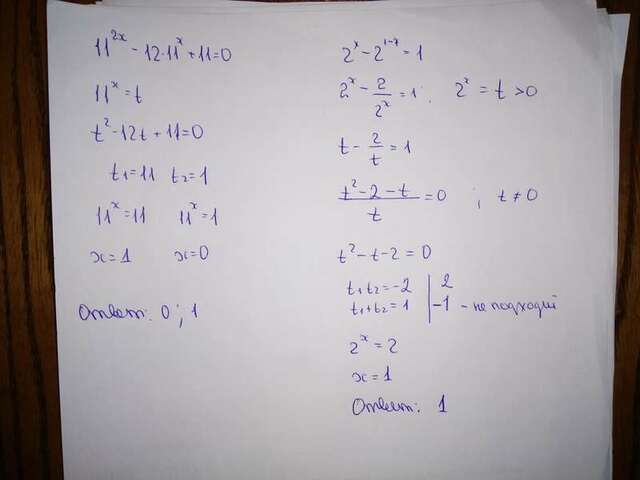 11^2x - 12·11^x + 11 = 0
11^x = t
t^2 - 12t + 11 = 0
t1 = 11 t2 = 1
11^x = 11 11^x = 1
x = 1 x = 0
Ответ: 0; 1
2^x - 2^1-x = 1
2^x - 2/2^x = 1; 2^x = t > 0
t - 2/t = 1
(t^2 - 2 - t)/t = 0 ; t ≠ 0
t^2 - t - 2 = 0
t1 t2 = -2 | 2
t1 + t2 = 1 | -1 - не подходит
2^x = 2
x = 1
Ответ: 1